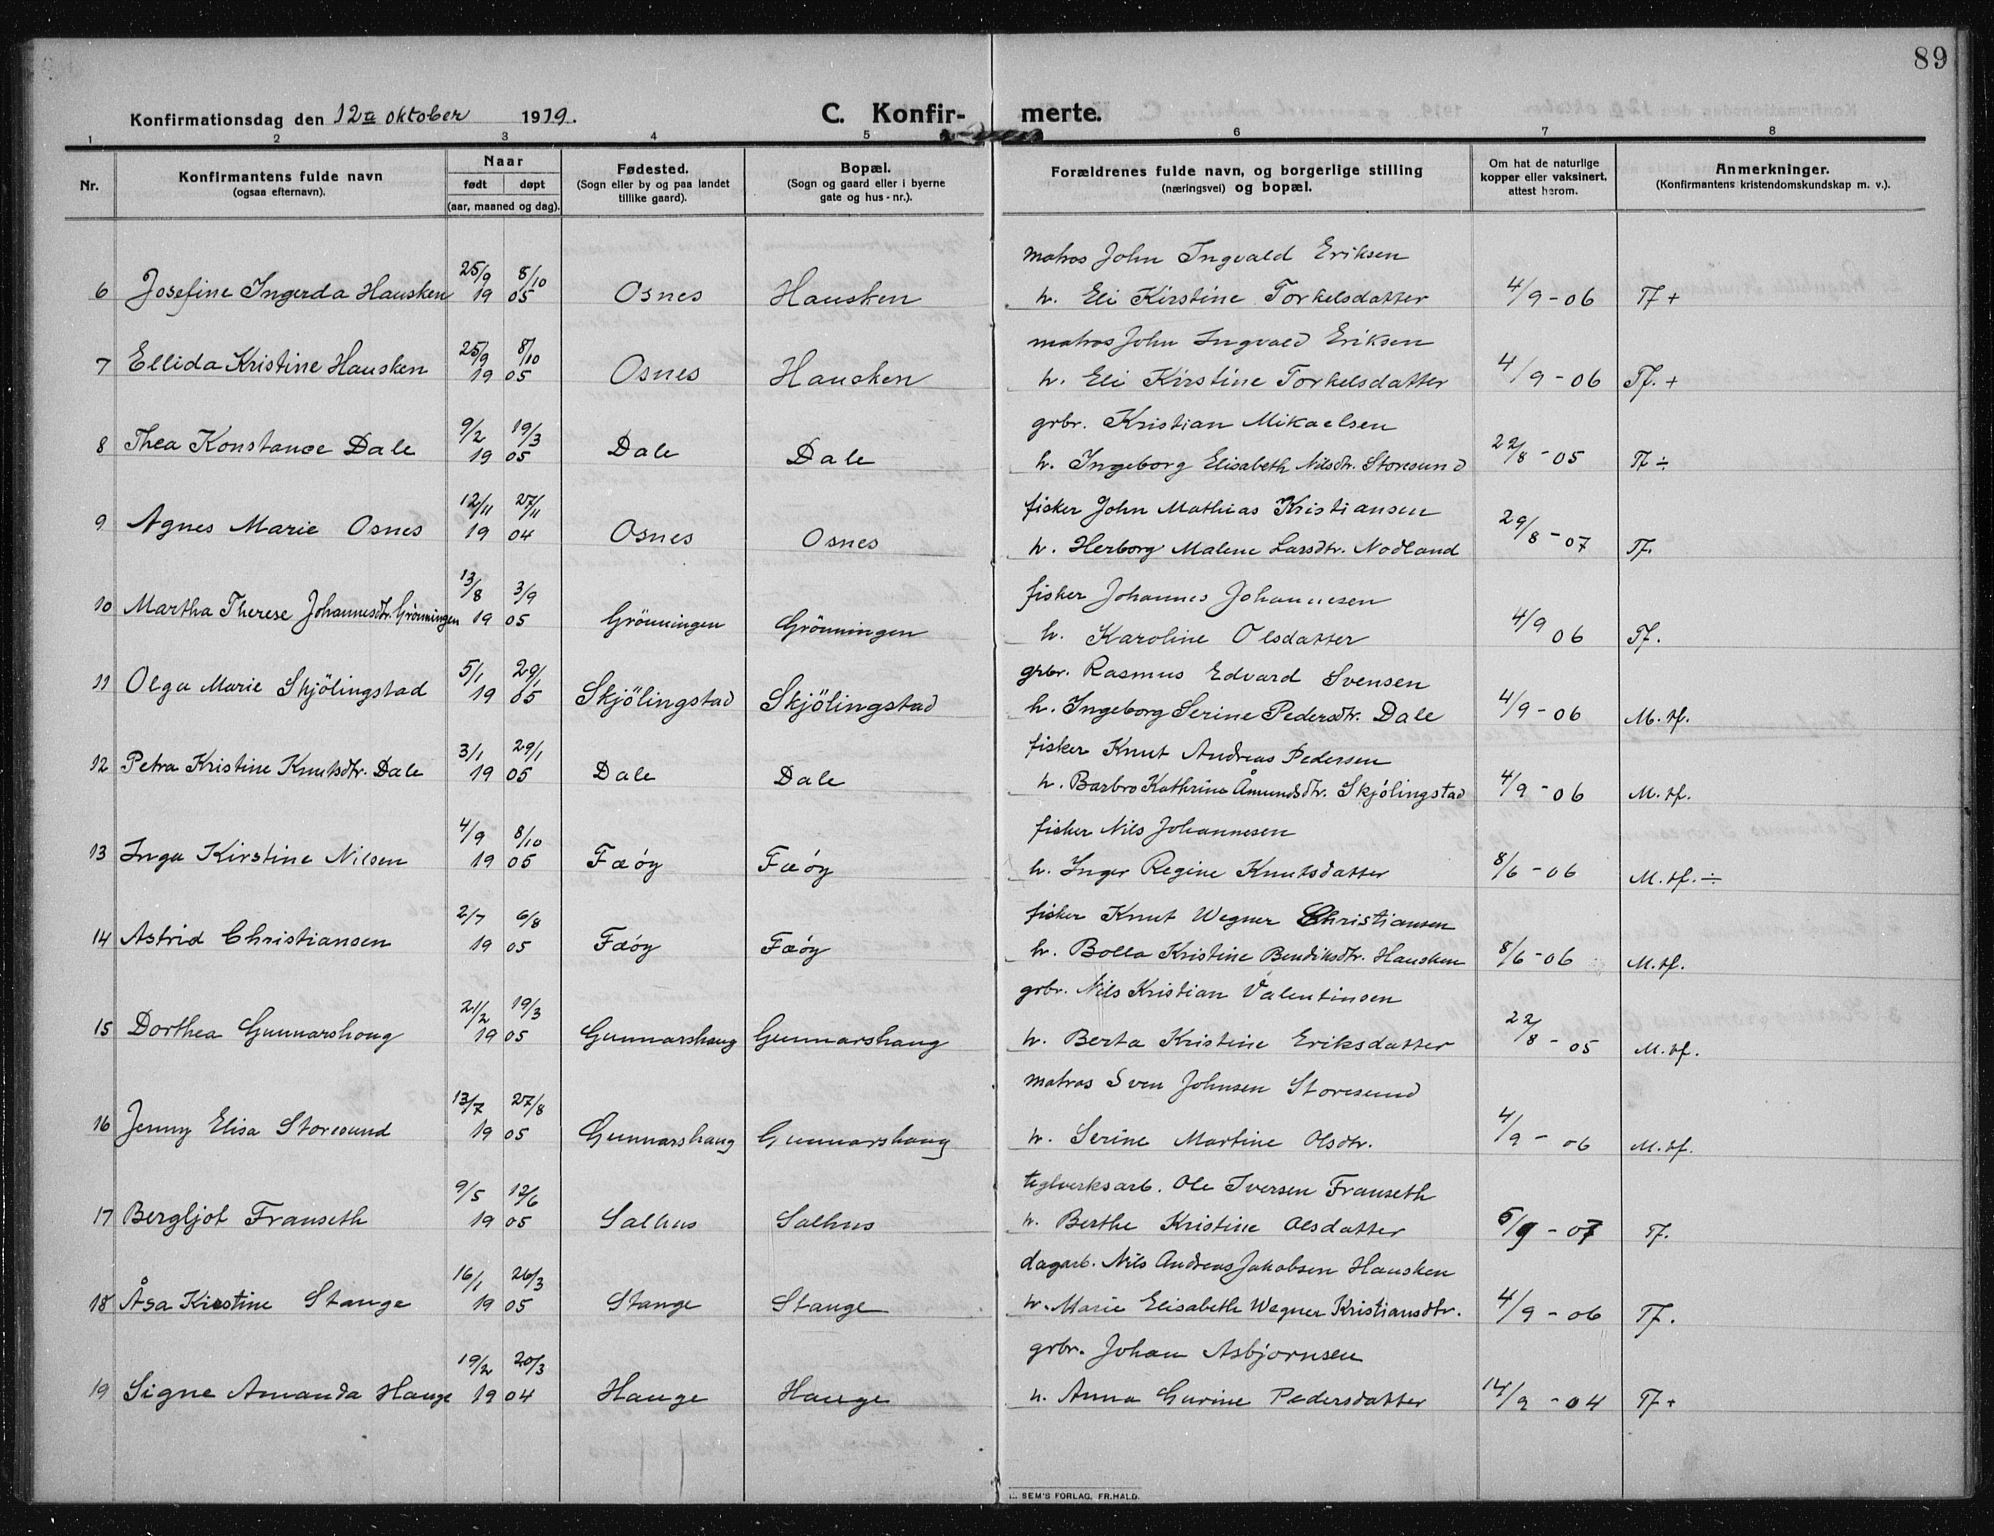 89
Konfirmationsdag den 12te oktober 1919.
C. Konfir-
merte.
1 2 3 4 5 6 7 8
Nr.
Konfirmantens fulde navn
(ogsaa efternavn).
Naar
født døpt
(aar, maaned og dag).
Fødested.
(Sogn eller by og paa landet
tillike gaard).
Bopæl.
(Sogn og gaard eller i byerne
gate og hus-nr.).
Forældrenes fulde navn, og borgerlige stilling
(næringsvei) og bopæl.
Om hat de naturlige
kopper eller vaksinert,
attest herom.
Anmerkninger.
(Konfirmantens kristendomskundskap m. v.).
25/9 8/10 matros John Ingvald Eriksen
6 Josefine Ingerda Hausken 19 05 Osnes Hausken h. Eli Kirstine Torkelsdatter 4/9-06 Tf +
25/9 8/10 matros John Ingvald Eriksen
7 Ellida Kristine Hausken 19 05 Osnes Hausken h. Eli Kirstine Torkelsdatter 4/9-06 Tf. +
9/2 19/3 grbr. Kristian Mikaelsen
8 Thea Konstance Dale 19 05 Dale Dale h. Ingeborg Elisabeth Nilsdtr. Storesund 22/8-05 Tf ÷
12/11 27/11 fisker John Mathias Kristiansen
9 Agnes Marie Osnes 19 04 Osnes Osnes h. Herborg Malene Larsdtr. Nodland 29/8-07 Tf.
13/8 3/9 fisker Johannes Johannesen
10 Martha Therese Johannesdtr. Grönningen 19 05 Grönningen Grönningen h. Karoline Olsdatter 4/9 06 Tf.
5/1 29/1 grbr. Rasmus Edvard Svensen
11 Olga Marie Skjölingstad 19 05 Skjölingstad Skjölingstad h. Ingeborg Serine Pedersdtr. Dale 4/9-06 M. tf.
3/1 29/1 fisker Knut Andreas Pedersen
12 Petra Kristine Knutsdtr. Dale 19 05 Dale Dale h. Barbro Kathrine Åmundsdtr. Skjölingstad 4/9-06 M. tf.
4/9 8/10 fisker Nils Johannesen
13 Inga Kirstine Nilsen 19 05 Fæöy Fæöy h. Inger Regine Knutsdatter 8/6-06 M. tf. ÷
2/7 6/8 fisker Knut Wegner Christiansen
14 Astrid Christiansen 19 05 Fæöy Fæöy h. Bolla Kristine Bendiksdtr. Hausken 8/6-06 M. tf.
21/2 19/3 grbr. Nils Kristian Valentinsen
15 Dorthea Gunnarshaug 19 05 Gunnarshaug Gunnarshaug h. Berta Kristine Eriksdatter 22/8-05 M. tf.
13/7 27/8 matros Sven Johnsen Storesund
16 Jenny Elisa Storesund 19 05 Gunnarshaug Gunnarshaug h. Serine Martine Olsdtr. 4/9-06 M. tf.
9/5 12/6 teglverksarb. Ole Iversen Franseth
17 Bergljot Franseth 19 05 Salhus Salhus h. Berthe Kristine Olsdatter 5/9-07 Tf.
16/1 26/3 dagarb. Nils Andreas Jakobsen Hausken
18 Åsa Kirstine Stange 19 05 Stange Stange h. Marie Elisabeth Wegner Kristiansdtr. 4/9-06 Tf.
19/2 20/3 grbr. Johan Asbjørnsen
19 Signe Amanda Hauge 19 04 Hauge Hauge h. Anna Gurine Pedersdatter 14/9-04 Tf +
SEM'S FORLAG, FR.HALD.